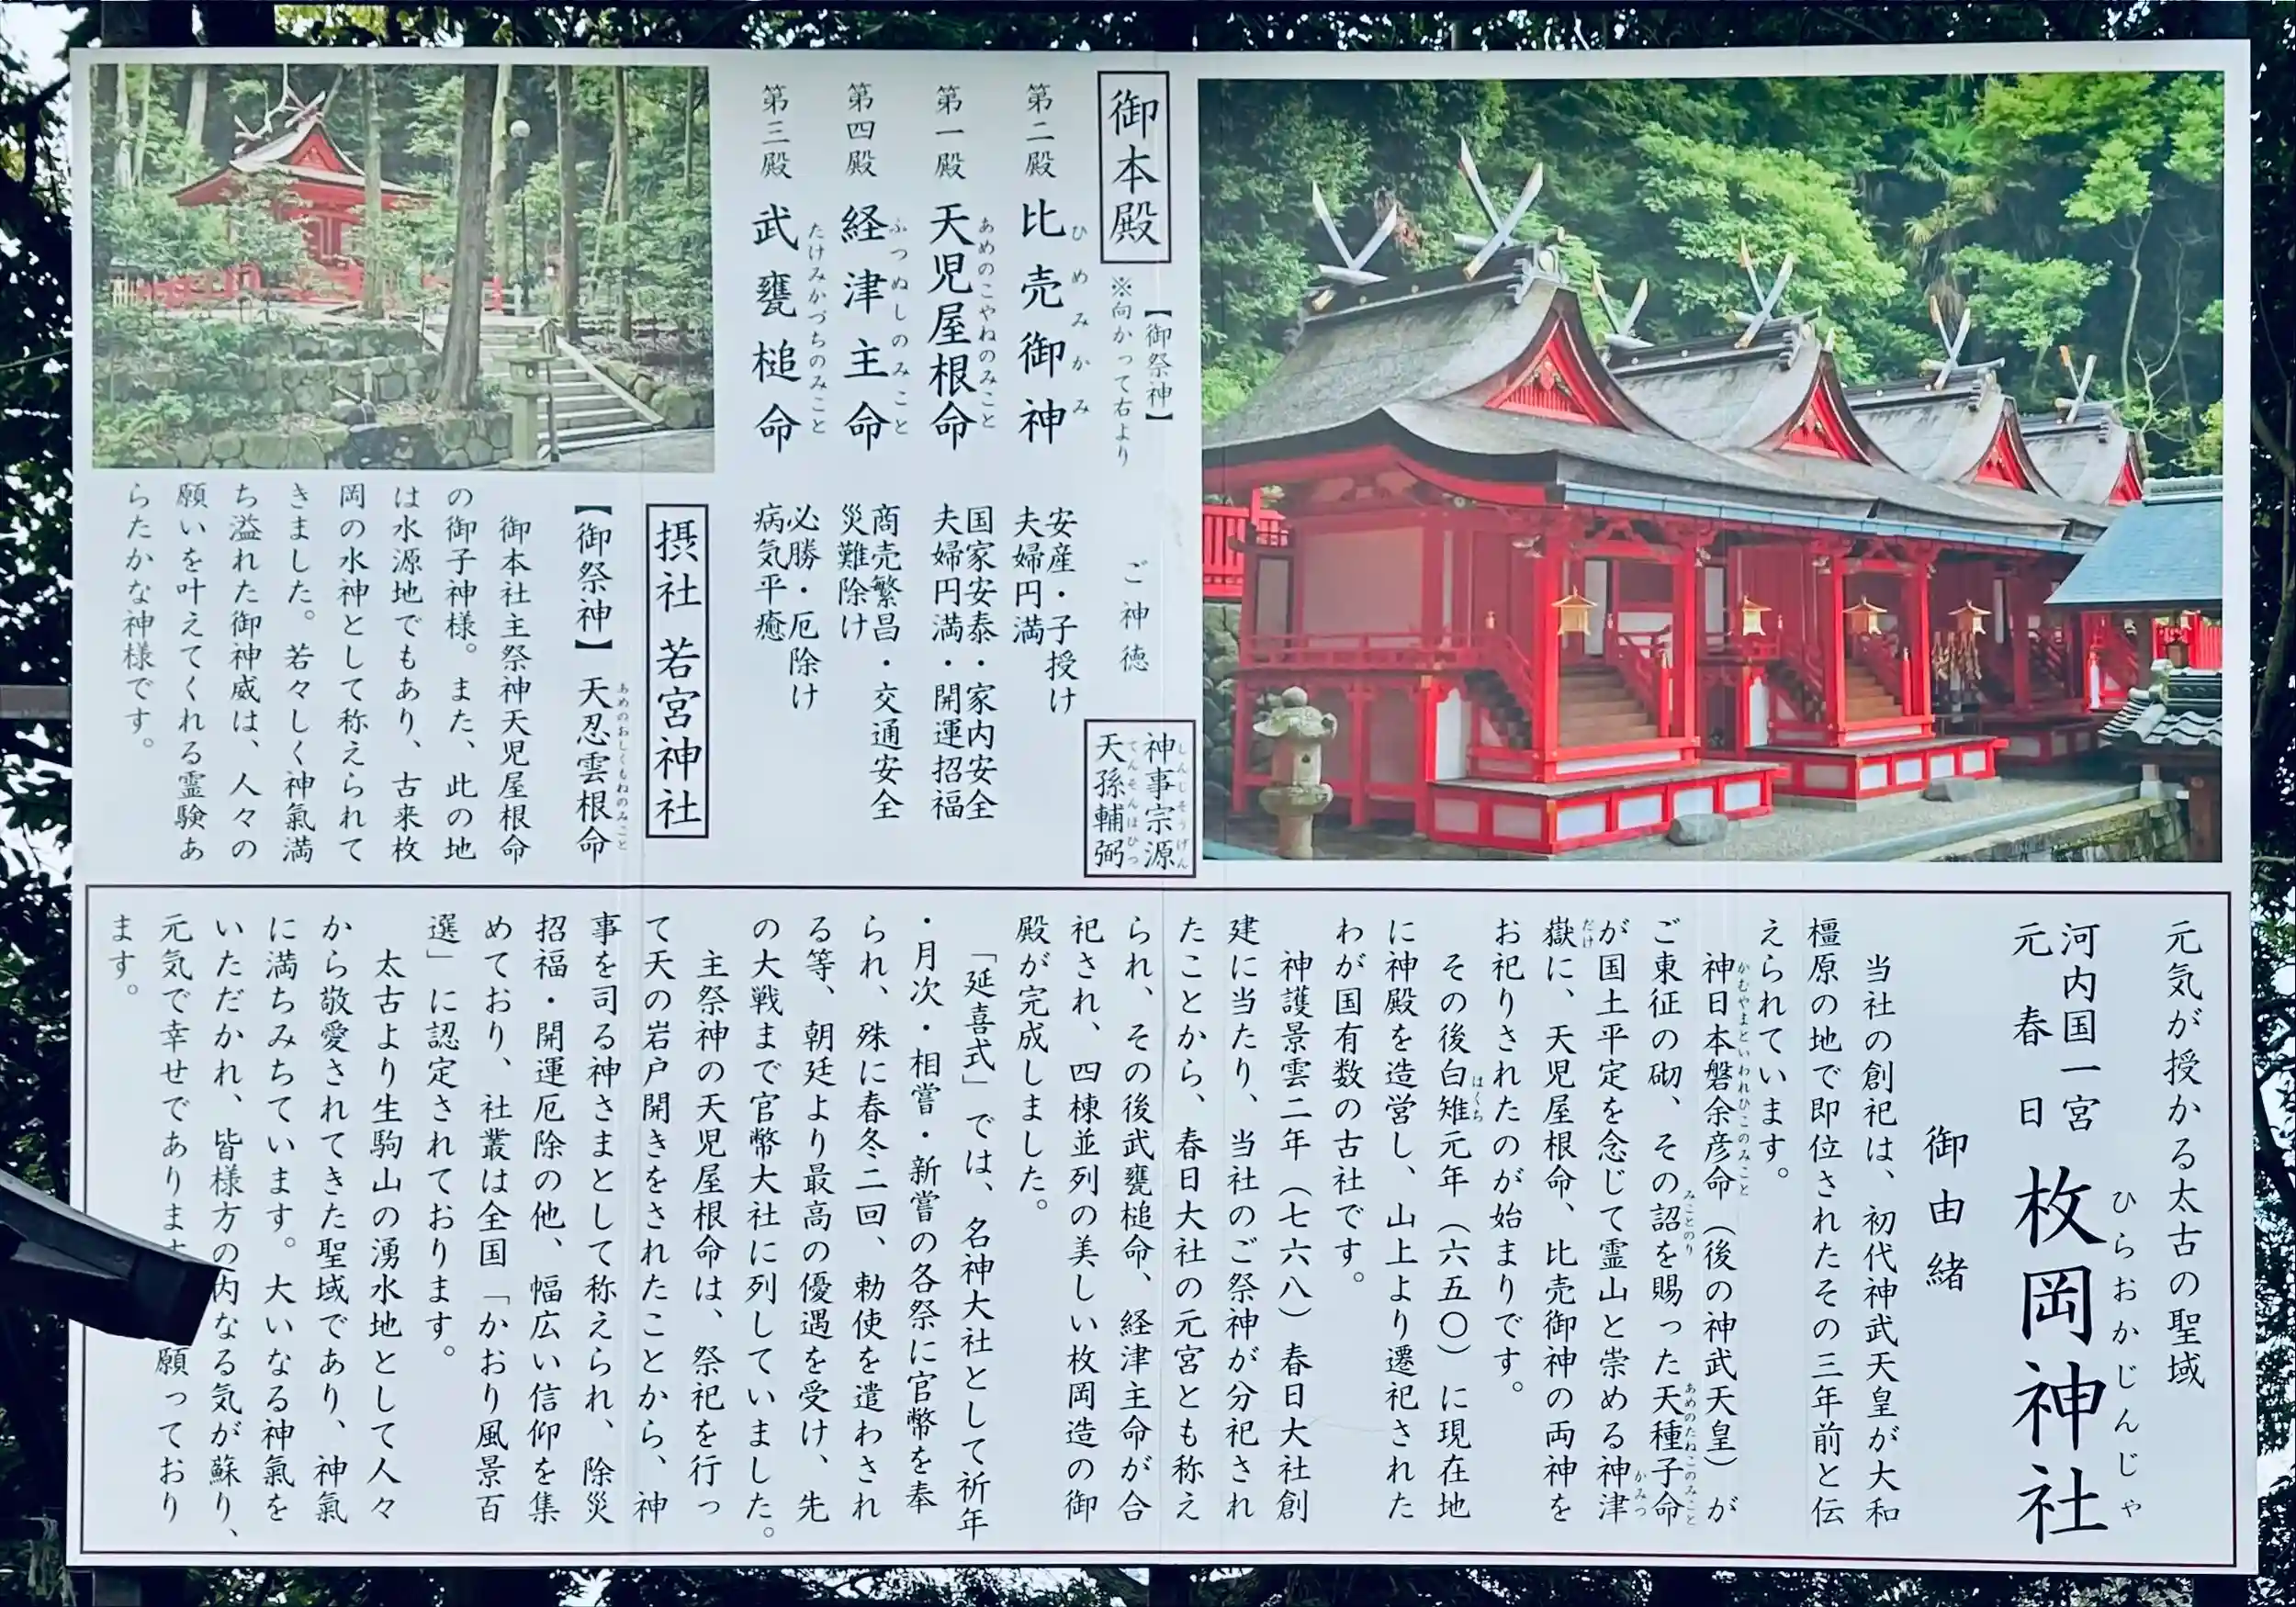 御本殿
【御祭神】
※向かって右より
ご神徳
第二殿 比売御神 安産・子授け
ひめみかみ
夫婦円満
第一殿 天児屋根命 国家安泰・家内安全
あめのこやねのみこと
夫婦円満・開運招福
第四殿 経津主命 商売繁昌・交通安全
ふつぬしのみこと
災難除け
第三殿 武甕槌命 必勝・厄除け
たけみかづちのみこと
病気平癒
神事宗源
しんじそうげん
天孫輔弼
てんそんほひつ
摂社 若宮神社
【御祭神】天忍雲根命
あめのおしくもねのみこと
御本社主祭神天児屋根命
の御子神様。また、此の地
は水源地でもあり、古来枚
岡の水神として称えられて
きました。若々しく神氣満
ち溢れた御神威は、人々の
願いを叶えてくれる霊験あ
らたかな神様です。
元気が授かる太古の聖域
河内国一宮
元春日
枚岡神社
ひらおかじんじゃ
御由緒
当社の創祀は、初代神武天皇が大和
橿原の地で即位されたその三年前と伝
えられています。
神日本磐余彦命（後の神武天皇）が
かむやまといわれひこのみこと
ご東征の砌、その詔を賜った天種子命
みことのり
あめのたねこのみこと
が国土平定を念じて霊山と崇める神津
かみつ
嶽に、天児屋根命、比売御神の両神を
だけ
お祀りされたのが始まりです。
その後白雉元年（六五〇）に現在地
はくち
に神殿を造営し、山上より遷祀された
わが国有数の古社です。
神護景雲二年（七六八）春日大社創
建に当たり、当社のご祭神が分祀され
たことから、春日大社の元宮とも称え
られ、その後武甕槌命、経津主命が合
祀され、四棟並列の美しい枚岡造の御
殿が完成しました。
「延喜式」では、名神大社として祈年
・月次・相嘗・新嘗の各祭に官幣を奉
られ、殊に春冬二回、勅使を遣わされ
る等、朝廷より最高の優遇を受け、先
の大戦まで官幣大社に列していました。
主祭神の天児屋根命は、祭祀を行っ
て天の岩戸開きをされたことから、神
事を司る神さまとして称えられ、除災
招福・開運厄除の他、幅広い信仰を集
めており、社叢は全国「かおり風景百
選」に認定されております。
太古より生駒山の湧水地として人々
から敬愛されてきた聖域であり、神氣
に満ちみちています。大いなる神氣を
いただかれ、皆様方の内なる気が蘇り、
元気で幸せでありま 願っており
ます。